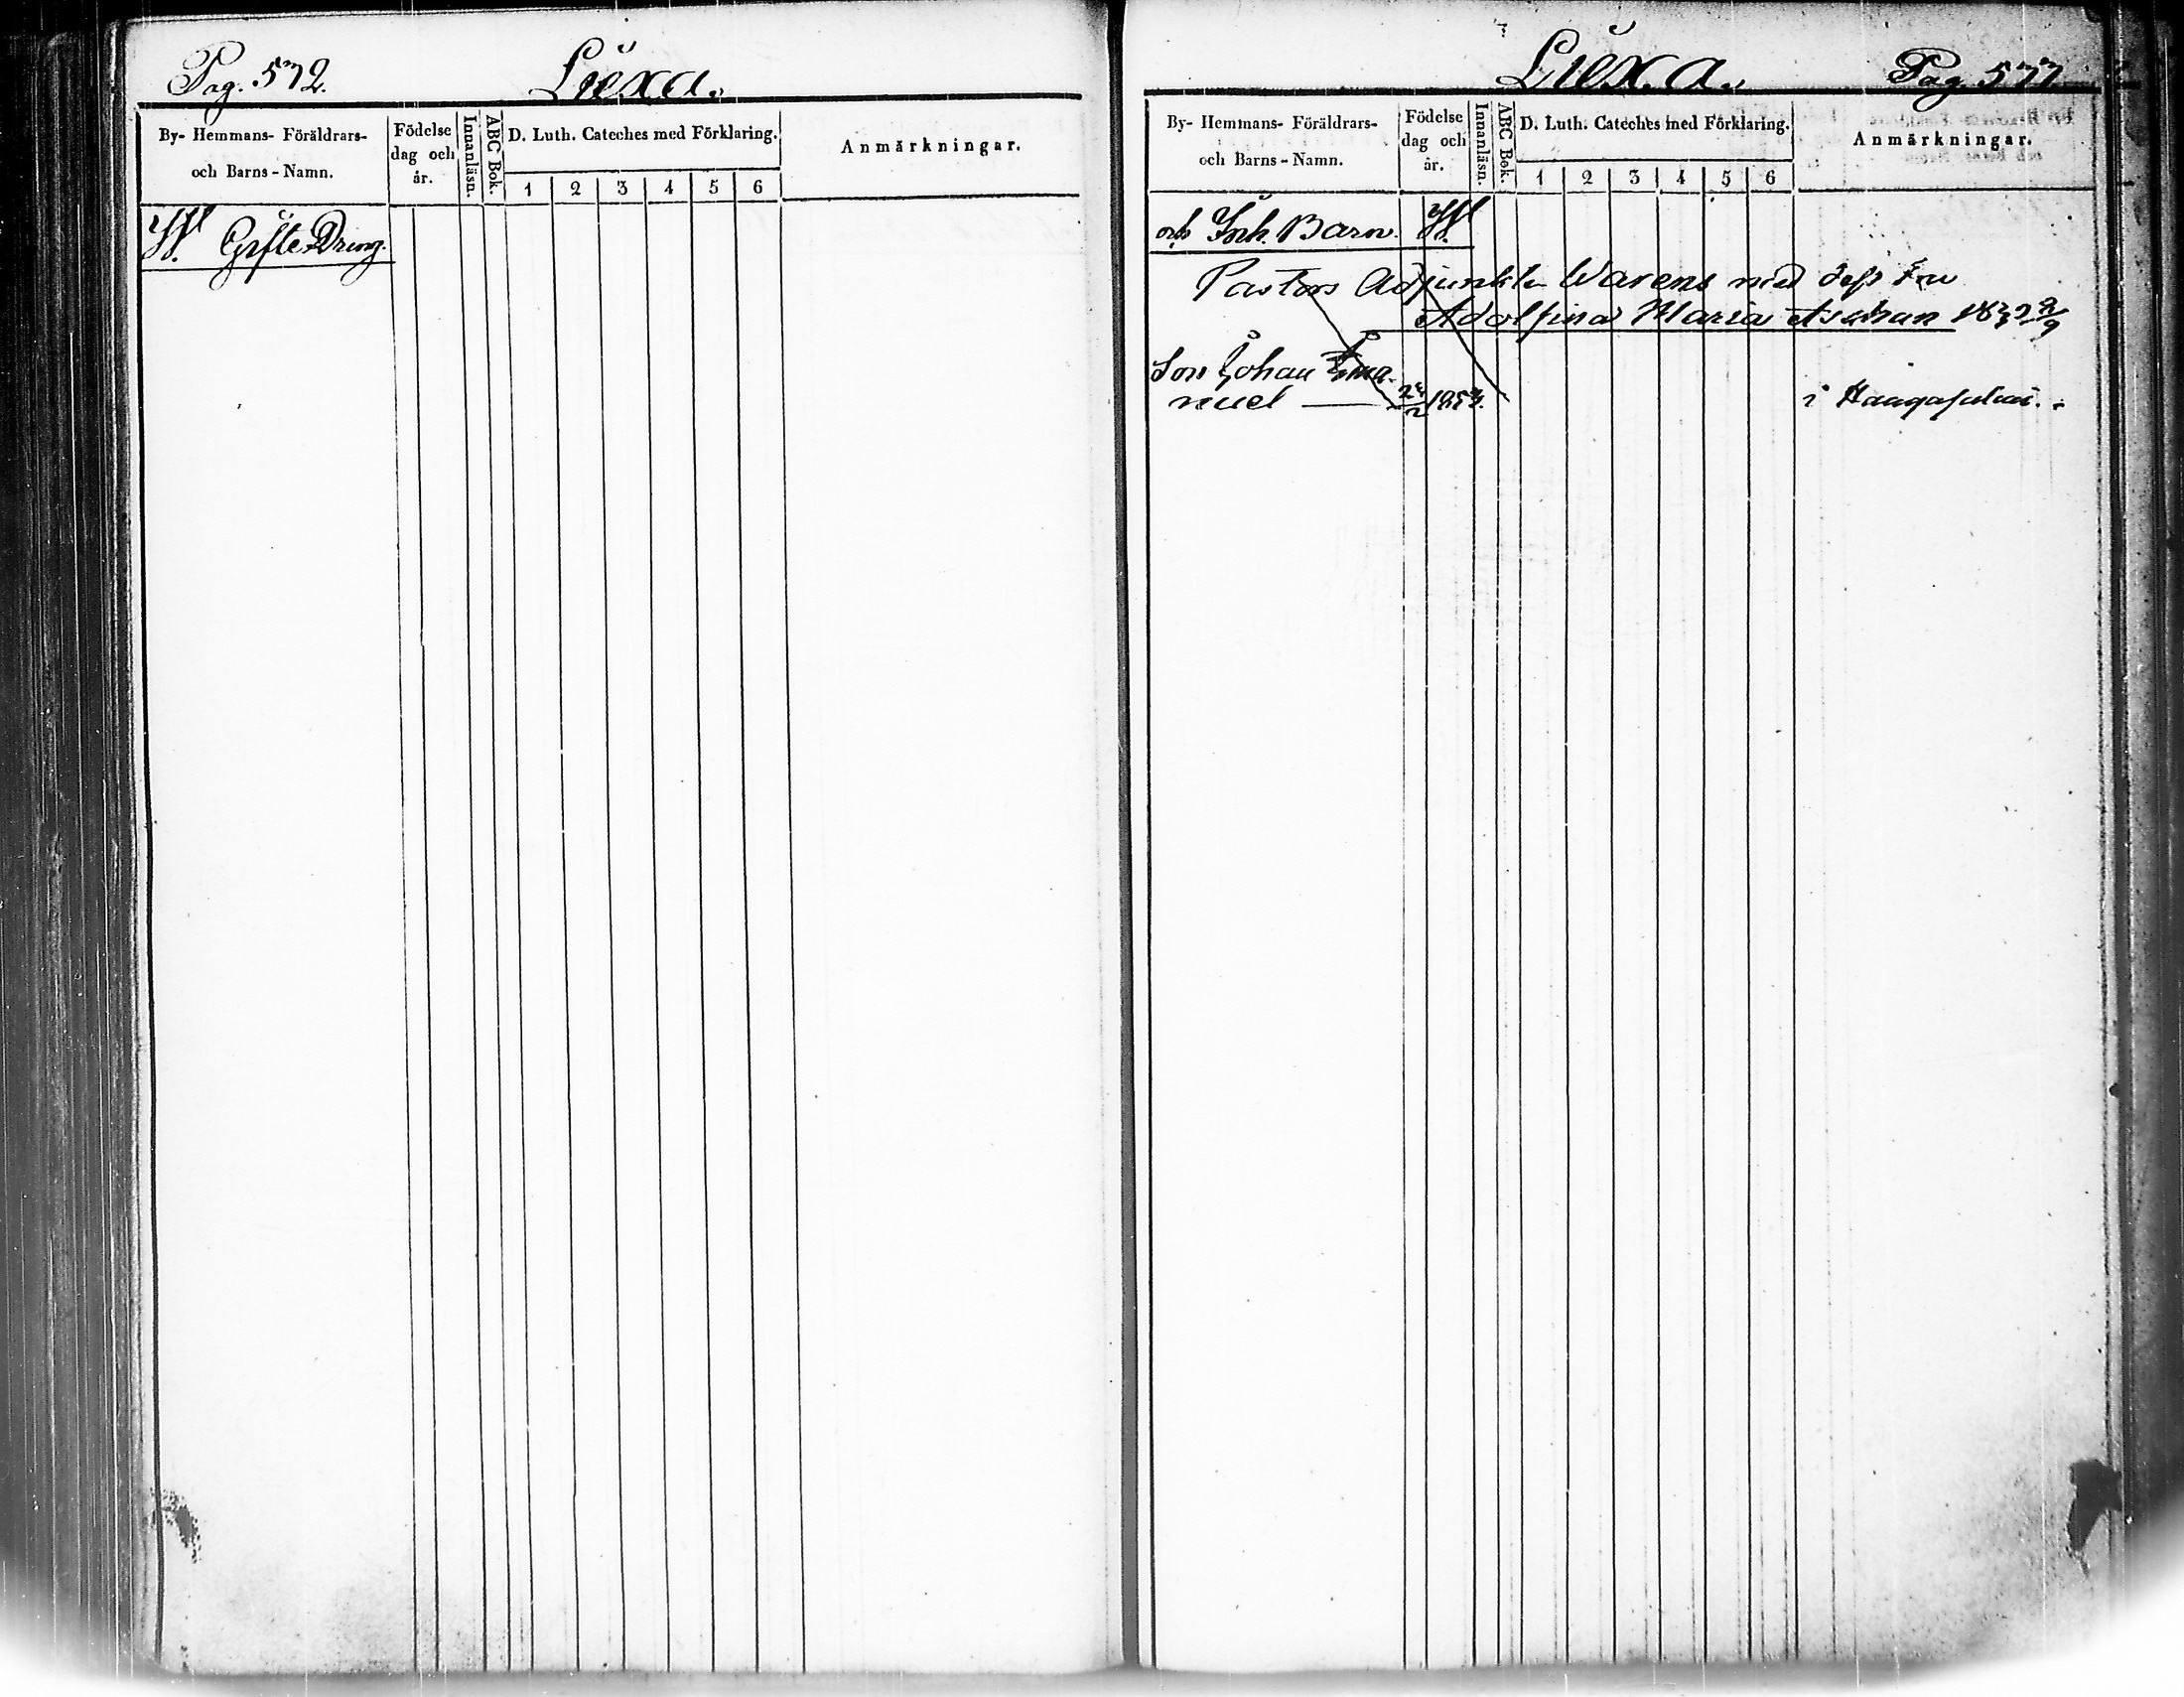 Pag. 572.
Liexa.
By- Hemmans- Föräldrars-
och Barns-Namn.
Födelse
dag och
år.
Innanläsn.
ABC Bok.
D. Luth. Cateches med Förklaring.
1 2 3 4 5 6
Anmärkningar.
Gifte Dräng.
Liexa.
Pag. 577.
By- Hemmans- Föräldrars-
och Barns-Namn.
Födelse
dag och
år.
Innanläsn.
ABC Bok.
D. Luth. Cateches med Förklaring.
1 2 3 4 5 6
Anmärkningar.
och Inh. Barn.
Pastors Adjunkten Warens med dess Fru
Adolfina Maria
Son Johan Ema-
nuel
i